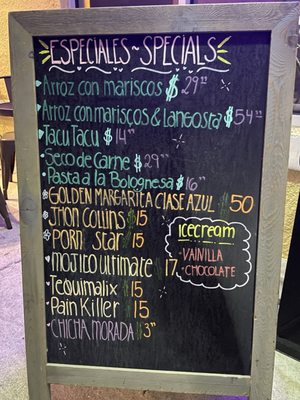 ESPECIALES ~ SPECIALS
Arroz con mariscos $ 29"
Arroz con mariscos & Langosta $ 54"
Tacu Tacu $ 14"
Seco de Carne $ 29"
Pasta a la Bolognesa $ 16"
GOLDEN MARGARITA CLASE AZUL $ 50
JHON COLLINS $15
PORN Star $15
MOJITO ULTIMATE $ 17
Tequimalix $ 15
Pain Killer $ 15
CHICHA MORADA $ 3"
Icecream
- VAINILLA
- CHOCOLATE